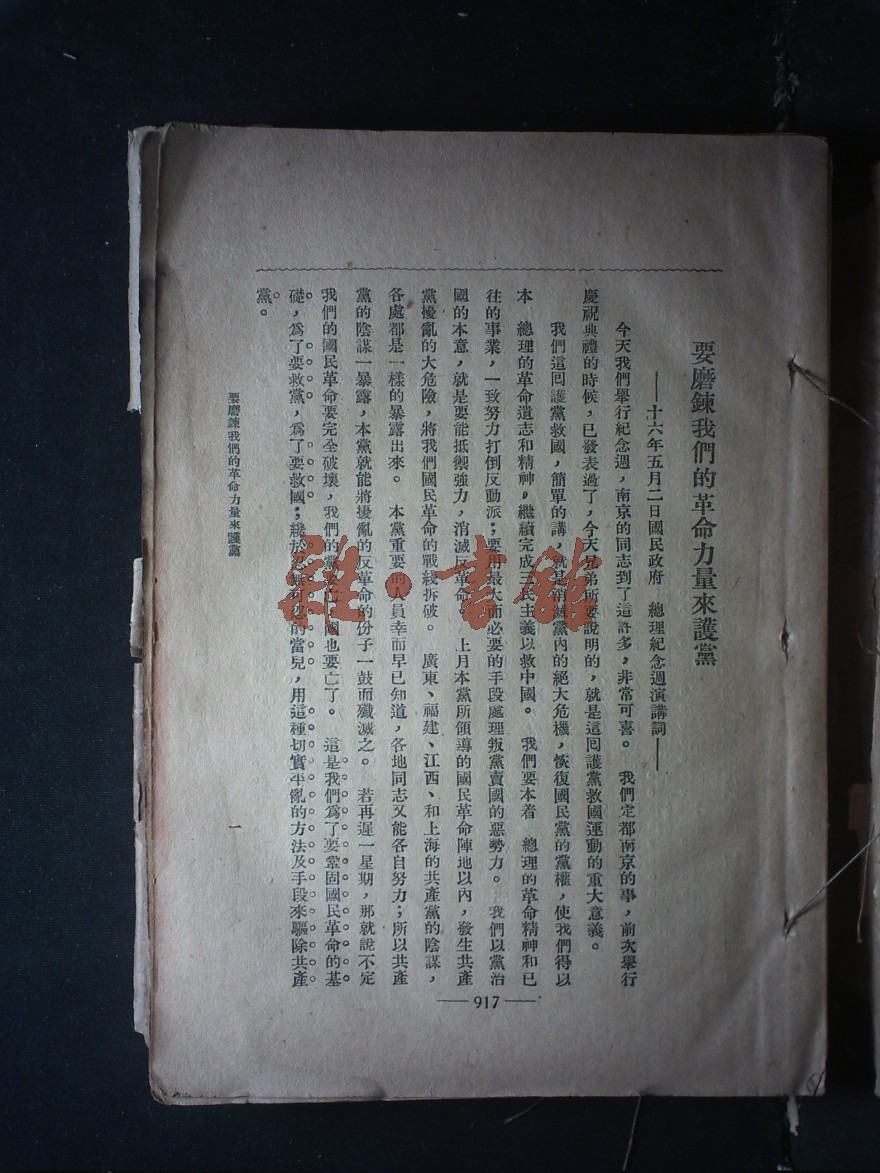 要磨鍊我們的革命力量來護黨
——十六年五月二日國民政府　總理紀念週演講詞——
今天我們舉行紀念週，南京的同志到了這許多，非常可喜。　我們定都南京的事，前次舉行
慶祝典禮的時候，已發表過了，今天兄弟所要說明的，就是這回護黨救國運動的重大意義。
我們這回護黨救國，簡單的講，就是消滅黨內的絕大危機，恢復國民黨的黨權，使我們得以
本　總理的革命遺志和精神，繼續完成三民主義以救中國。　我們要本着　總理的革命精神和已
往的事業，一致努力打倒反動派；要用最大而必要的手段處理叛黨賣國的惡勢力。　我們以黨治
國的本意，就是要能抵禦強力，消滅反革命。　上月本黨所領導的國民革命陣地以內，發生共產
黨擾亂的大危險，將我們國民革命的戰綫拆破。　廣東、福建、江西、和上海的共產黨的陰謀，
各處都是一樣的暴露出來。　本黨重要的人員幸而早已知道，各地同志又能各自努力；所以共產
黨的陰謀一暴露，本黨就能將擾亂的反革命的份子一鼓而殲滅之。　若再遲一星期，那就說不定
我們的國民革命要完全破壞，我們的黨要亡，國也要亡了。　這是我們爲了要鞏固國民革命的基
礎，爲了要救黨，爲了要救國；纔於忍無可忍的當兒，用這種切實平亂的方法及手段來驅除共產
黨。
要磨鍊我們的革命力量來護黨
一
——917——
雜·書館